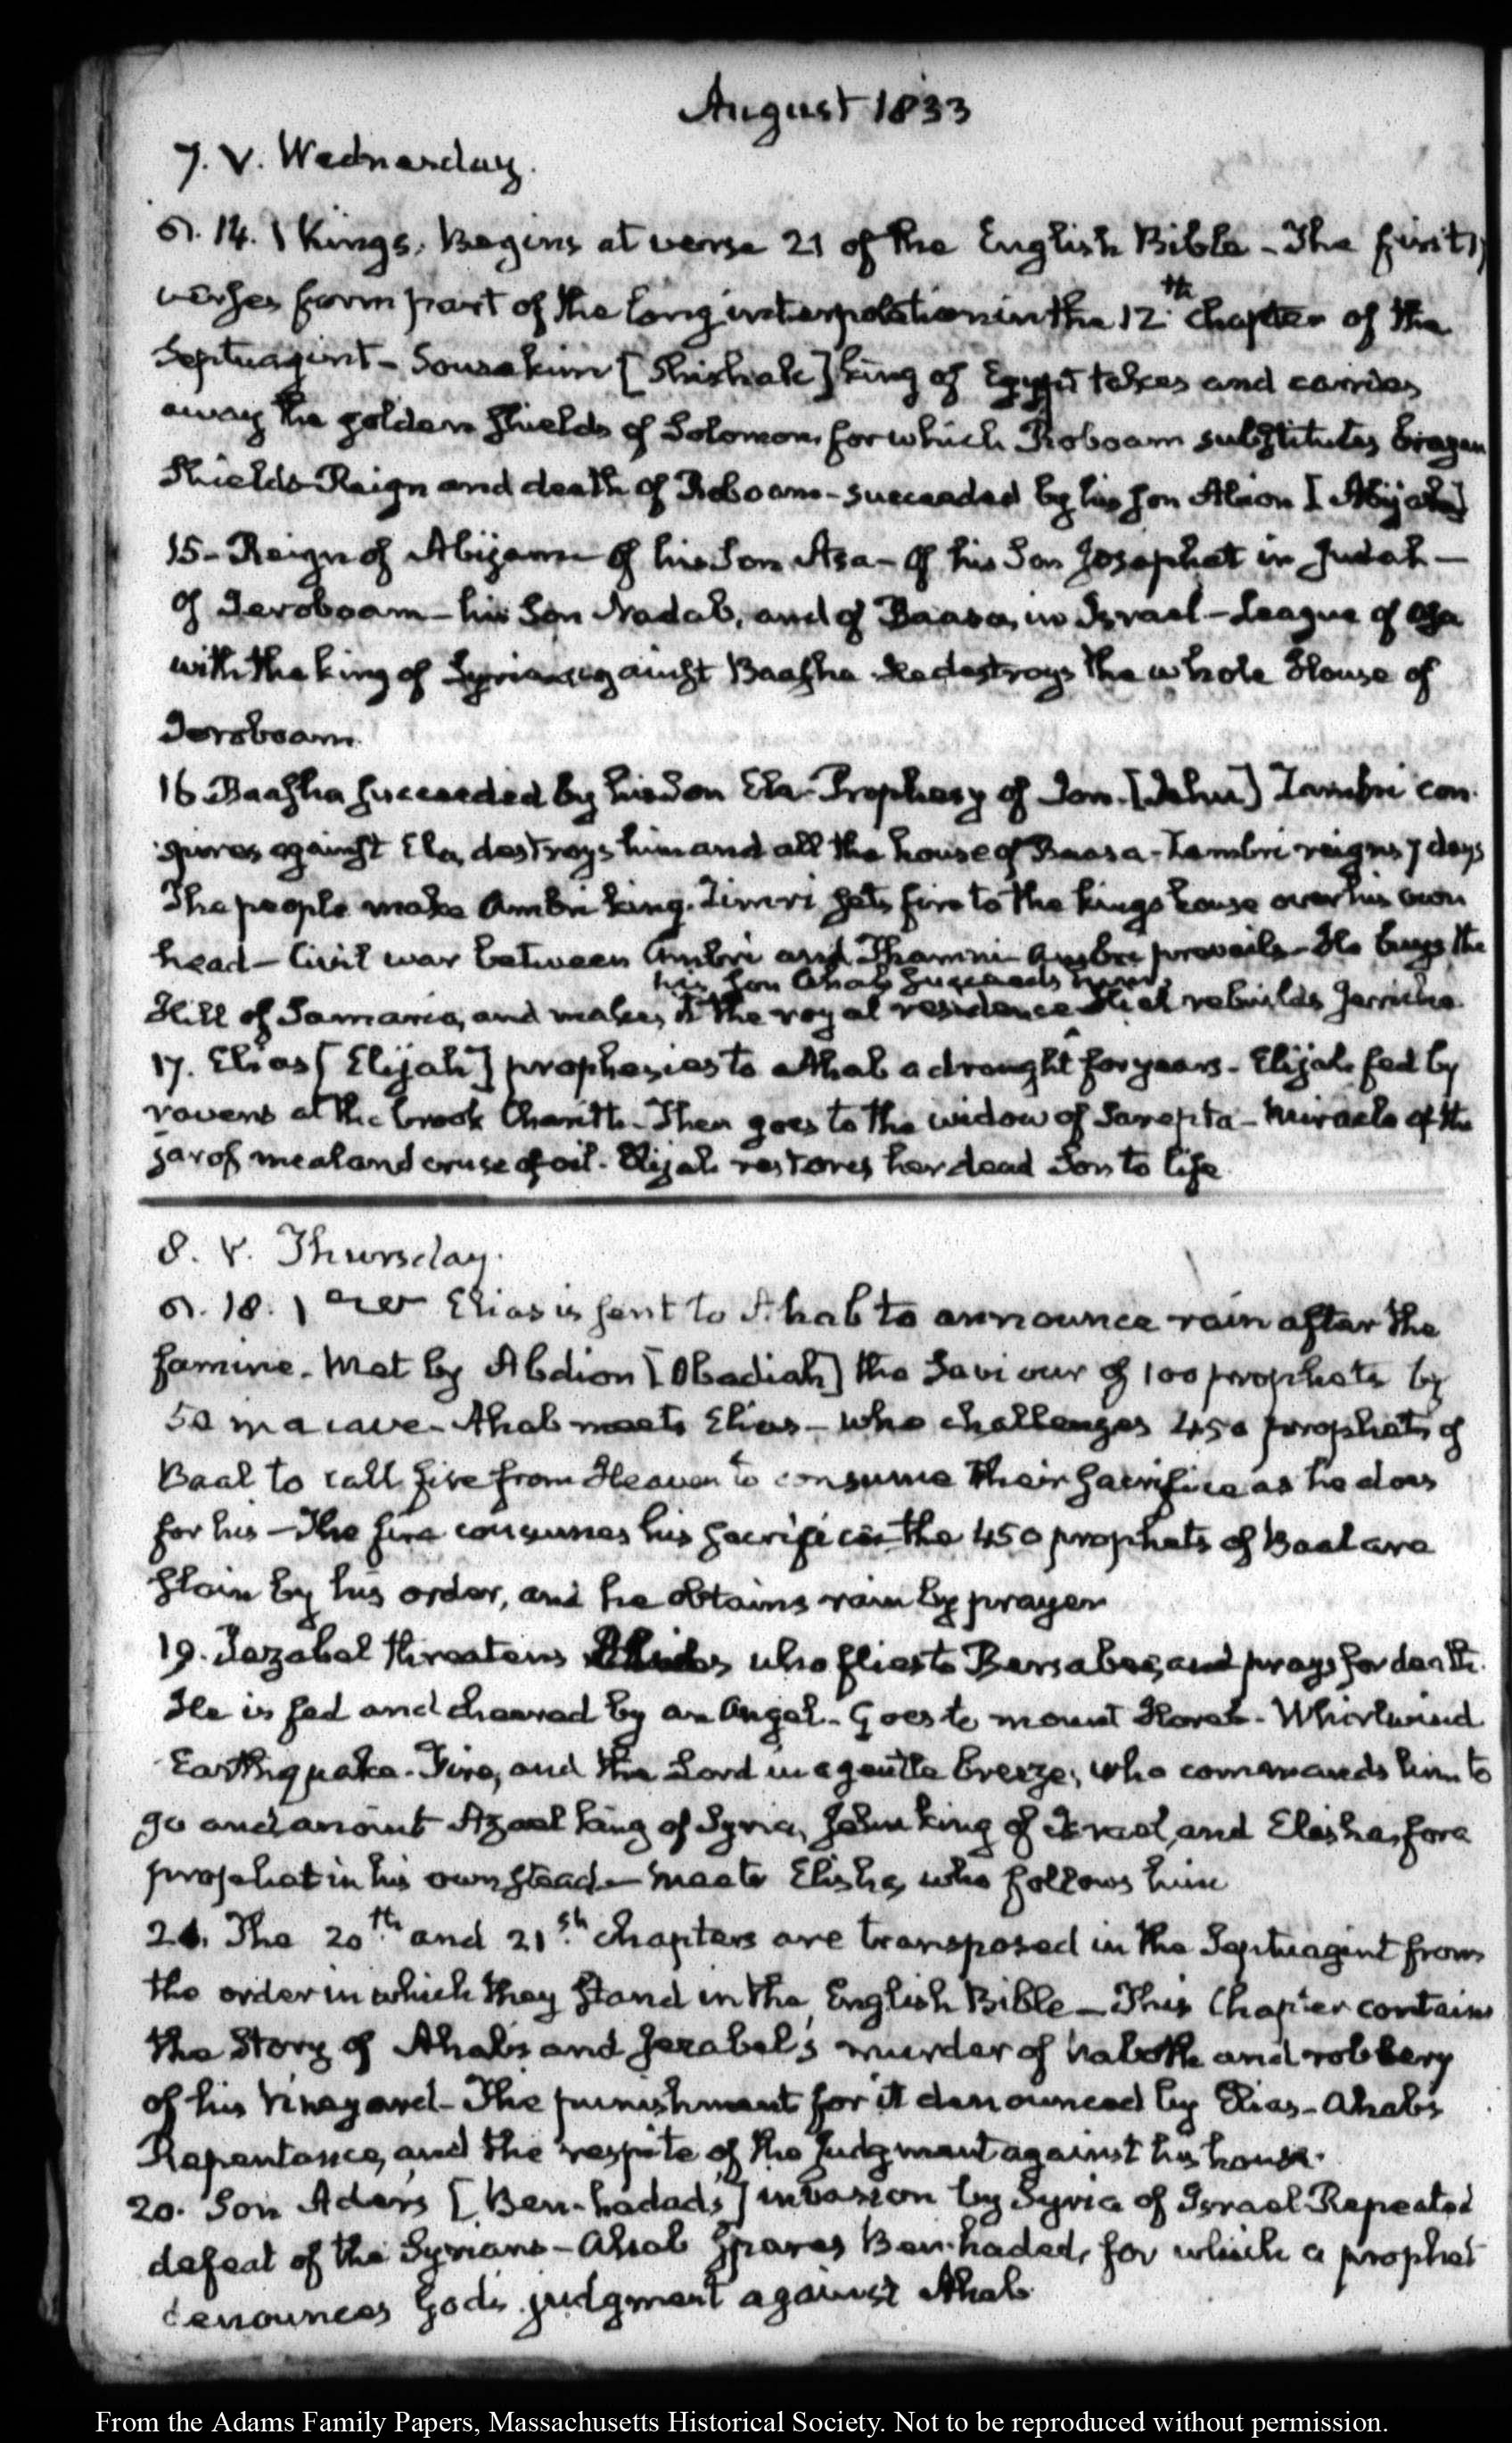 August 1833
7. V. Wednesday.
14. 1 Kings. Begins at verse 21 of the English Bible - The first
verses form part of the long interpolation in the 12th chapter of the
Septuagint - Sousakim [Shishak] king of Egypt takes and carries
away the golden shields of Solomon, for which Roboam substitutes brazen
shields - Reign and death of Roboam - succeeded by his son Abion [Abijah]
15 - Reign of Abijam - of his Son Asa - of his Son Josaphat in Judah -
of Jeroboam - his Son Nadab, and of Baasa, in Israel - League of Asa
with the king of Syria against Baasha - He destroys the whole House of
Jeroboam.
16 Baasha succeeded by his Son Ela - Prophesy of Jou. [Jehu] Zambri con-
spires against Ela, destroys him and all the house of Baasa - Zambri reigns 7 days
The people make Ambri king. Zimri sets fire to the kings house over his own
head - Civil war between Ambri and Thamni - Ambri prevails - He buys the
his Son Ahab succeeds him.
Hill of Samaria, and makes it the royal residence - Hiel rebuilds Jericho
17. Elias [Elijah] prophesies to Ahab a drought for years - Elijah fed by
ravens at the brook Charith - Then goes to the widow of Sarepta - Miracle of the
jar of meal and cruse of oil - Elijah restores her dead Son to life
8. V. Thursday.
18. 1 Elias is sent to Ahab to announce rain after the
famine. Met by Abdion [Obadiah] the Saviour of 100 prophets by
50 in a cave - Ahab meets Elias - who challenges 450 prophets of
Baal to call fire from Heaven to consume their sacrifice as he does
for his - The fire consumes his sacrifice the 450 prophets of Baal are
slain by his order, and he obtains rain by prayer
19. Jezabel threatens who flies to Bersabee, and prays for death.
He is fed and cheered by an Angel - Goes to mount Horeb - Whirlwind
Earthquake - Fire, and the Lord in a gentle breeze, who commands him to
go and anoint Azael king of Syria, Jehu king of Israel, and Elisha, for a
prophet in his own stead - meets Elisha, who follows him
21. The 20th and 21st chapters are transposed in the Septuagint from
the order in which they stand in the English Bible - This Chapter contains
the Story of Ahab's and Jezabel's murder of Naboth and robbery
of his Vineyard - The punishment for it denounced by Elias - Ahab's
Repentance, and the respite of the Judgment against his house.
20. Son Ader's [Ben-hadad's] invasion by Syria of Israel - Repeated
defeat of the Syrians - Ahab spares Ben-hadad, for which a prophet
denounces God's judgment against Ahab
From the Adams Family Papers, Massachusetts Historical Society. Not to be reproduced without permission.